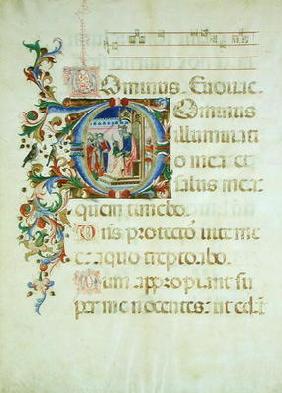 Dominus. Euouae.
Dominus
illuminati
o mea et
salus mea
quem timebo.
Dn̄s protector uite me
e: a quo trepidabo.
Dum appropiant su
per me nocentes: ut edāt